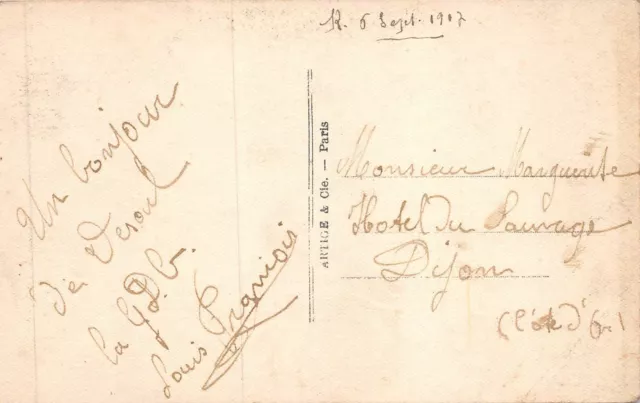 R. 6 Sept. 1917
Un bonjour
de Vesoul
la G.D.C.
Louis
ARTIGE & Cie. — Paris
Monsieur Marguerite
Hotel du Sauvage
Dijon
(Côte d'Or)